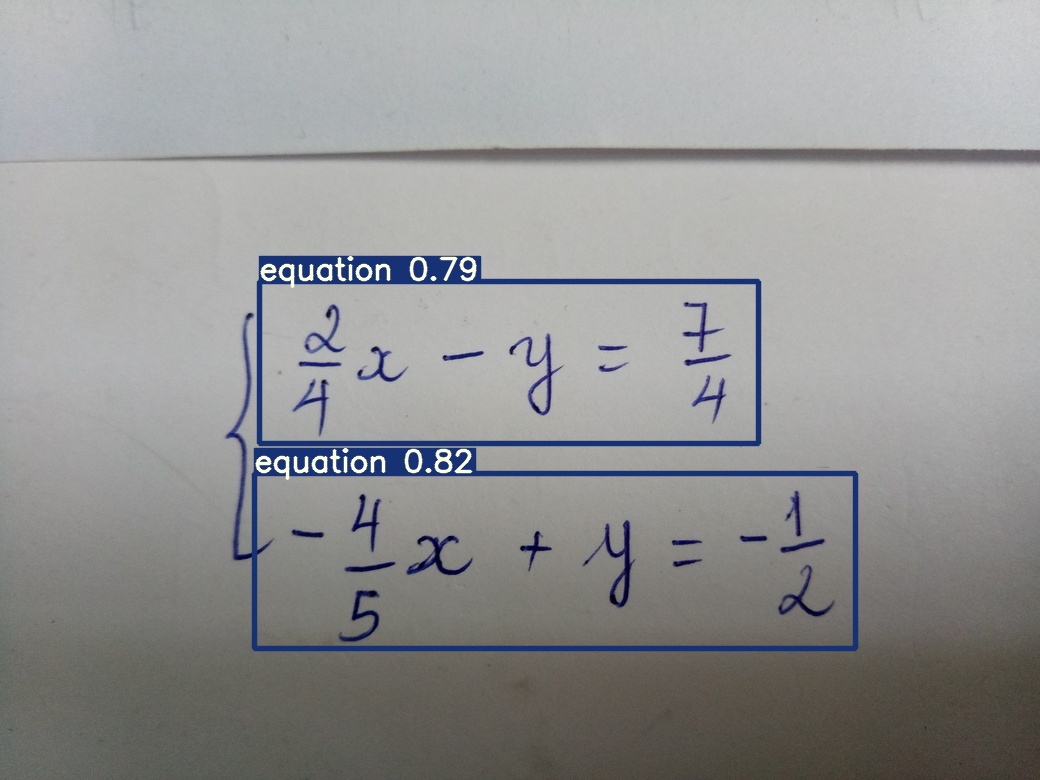 equation 0.79
2/4 x - y = 7/4
equation 0.82
- 4/5 x + y = - 1/2